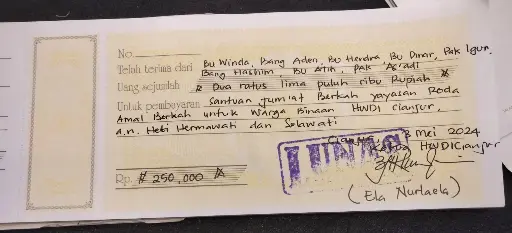 No.
Telah terima dari Bu Winda, Bang Aden, Bu Hendra Bu Dinar, Pak Igun,
Bang Hashim, Bu Atih, Pak As'adi
Uang sejumlah # Dua ratus lima puluh ribu Rupiah #
Untuk pembayaran Santuan Jum'at Berkah yayasan Roda
Amal Berkah untuk Warga Binaan HWDI Cianjur,
a.n. Heti Hermawati dan Selawati
Cianjur, 3 Mei 2024
Ketua HWDI Cianjur
LUNAS
Rp. # 250,000 #
(Ela Nurlaela)